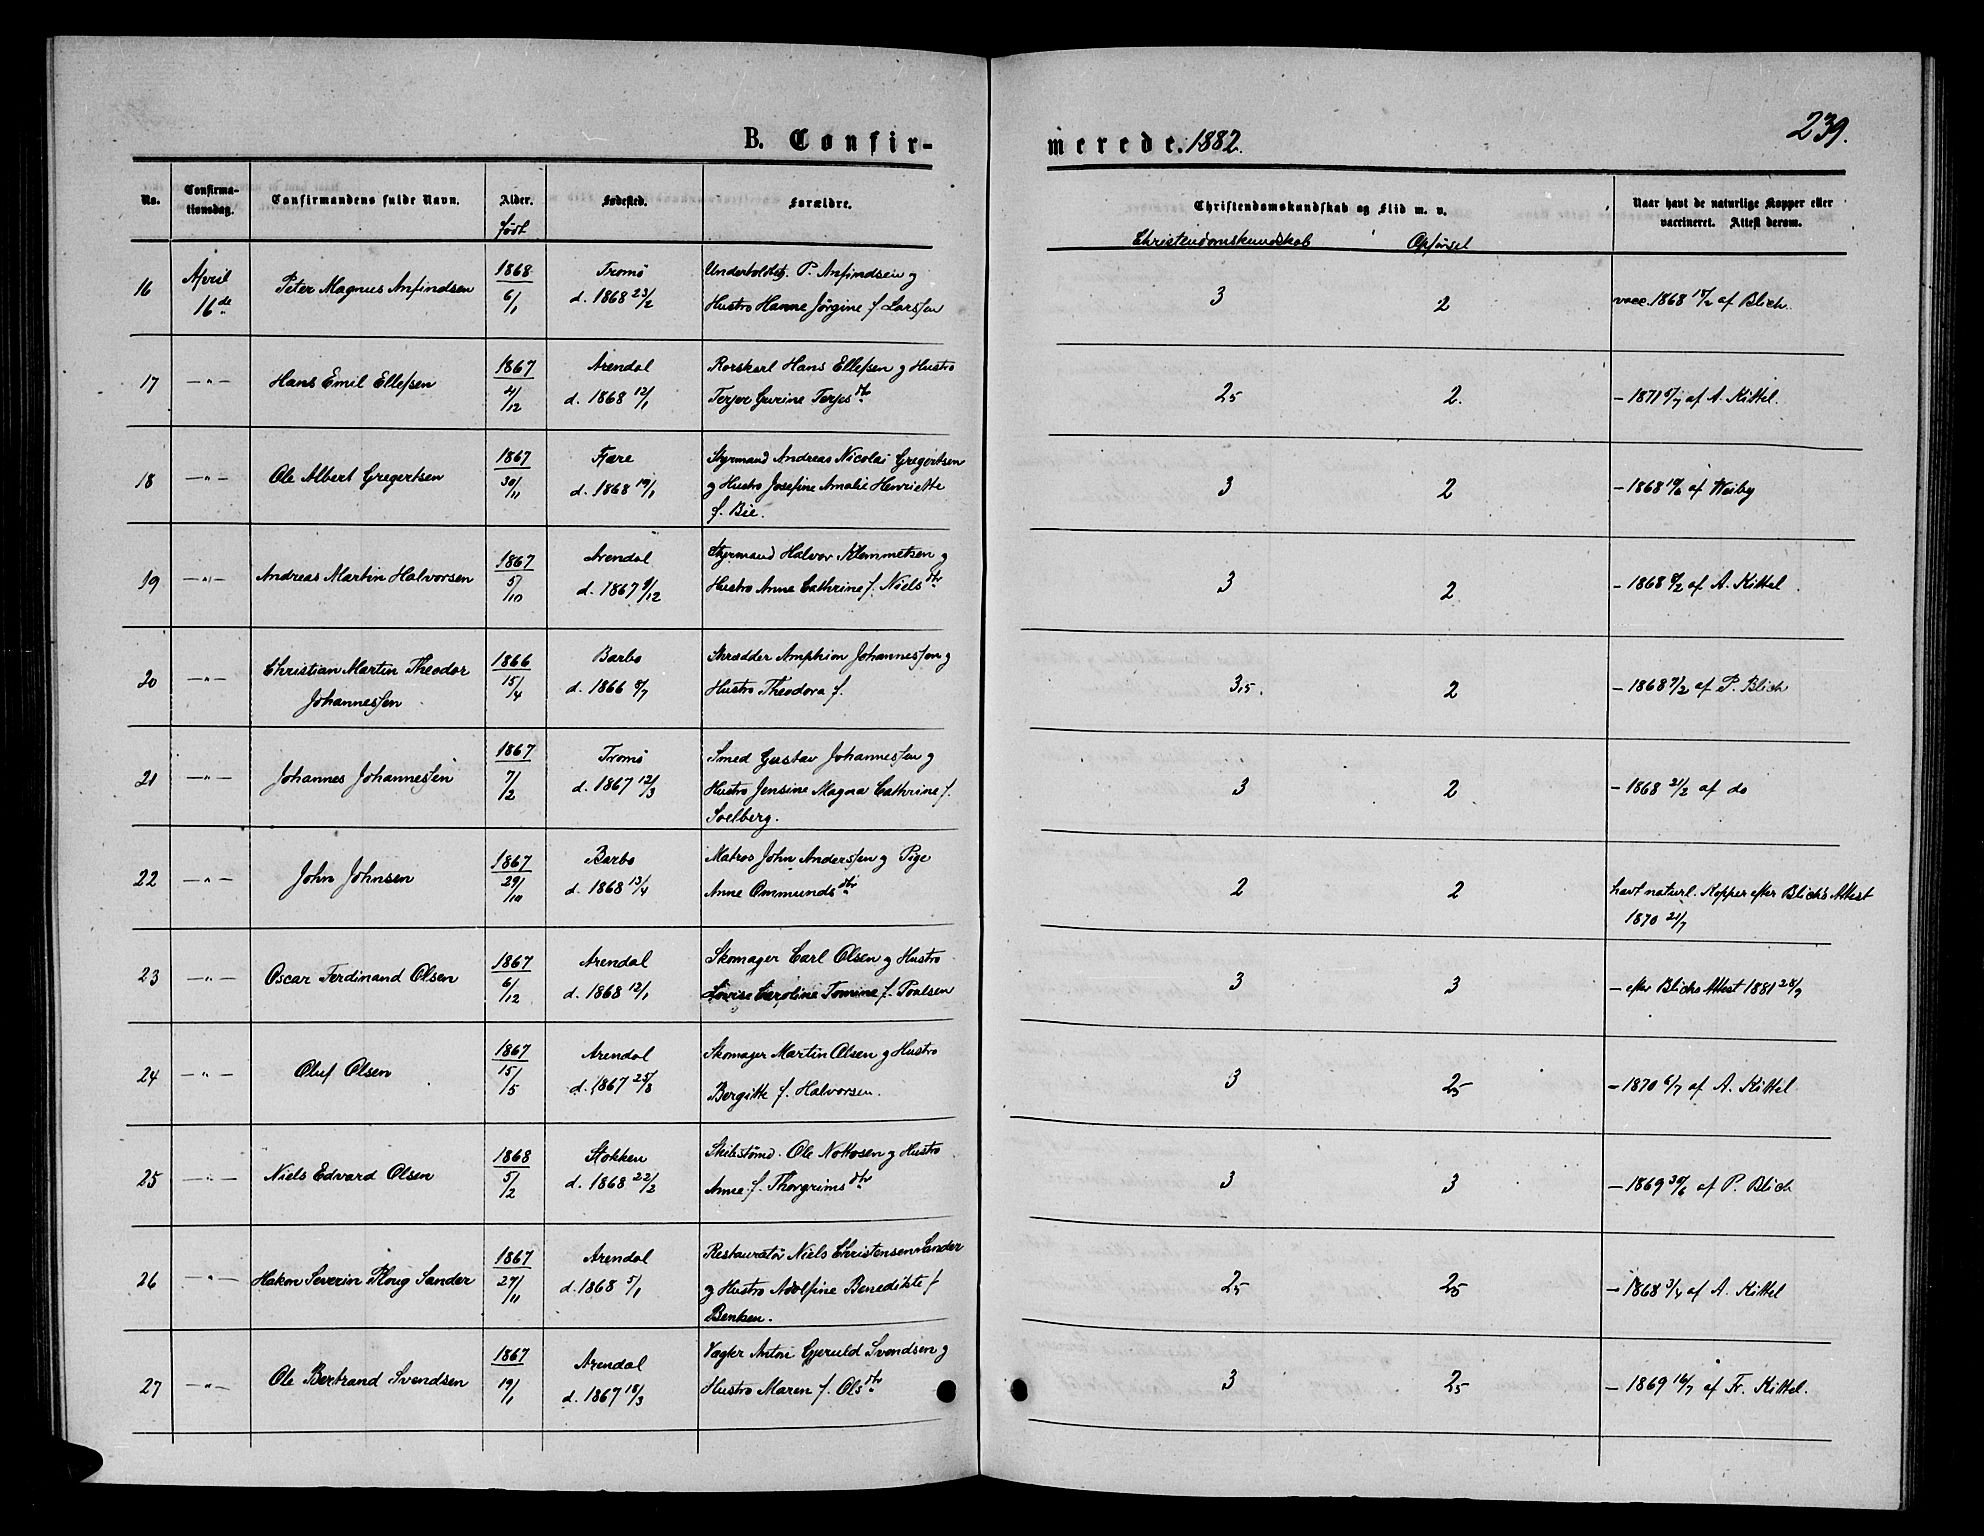 B. Confir-
merede. 1882.
239.
No.
Confirma-
tionsdag.
Confirmandens fulde Navn.
Alder.
født
Fødested.
Forældre.
Christendomskundskab og Flid m. v.
Christendomskundskab Opførsel
Naar havt de naturlige Kopper eller
vaccineret. Attest derom.
16 April 16de Peter Magnus Anfindsen 1868 6/1 Tromø d. 1868 23/2
P. Anfindsen og
Hustro Hanne Jørgine f. Larssen
3 2 vacc. 1868 18/2 af Blich.
17 —"— Hans Emil Ellefsen 1867 4/12 Arendal d. 1868 12/1
Rorskarl Hans Ellefsen og Hustro
Gurine Terjesdtr
25 2. — 1871 6/7 af A. Kittel.
18 —"— Ole Albert Gregertsen 1867 30/11 Fjære d. 1868 19/1
Styrmand Andreas Nicolai Gregertsen
og Hustro Josefine Amalie Henriette
f. Bie.
3 2 — 1868 af Weiby
19 —"— Andreas Martin Halvorsen 1867 5/10 Arendal d. 1867 9/12
Styrmand Halvor Klemmetsen og
Hustro Anne Cathrine f. Nielsdtr
3 2 — 1868 8/2 af A. Kittel.
20 —"— Christian Martin Theodor
Johannessen 1866 15/4 Barbo d. 1866 8/7
Skrædder Amphion Johannessen og
Hustro Theodora f.
3,5. 2 — 1868 7/2 af P. Blich
21 —"— Johannes Johannessen 1867 7/2 Tromø d. 1867 12/3
Smed Gustav Johannessen og
Hustro Jensine Magna Cathrine f.
Soelberg.
3 2 — 1868 21/2 af do
22 —"— John Johnsen 1867 29/10 Barbo d. 1868 13/4
Matros John Anderssen og Pige
Anne Ommundsdtr
2 2 havt naturl. Kopper efter Blichs Attest
1870 21/7
23 —"— Oscar Ferdinand Olsen 1867 6/12 Arendal d. 1868 12/1
Skomager Carl Olsen og Hustro
Lovise Caroline Tomine f. Poulsen
3 3 — efter Blichs Attest 1881 28/9
24 —"— Oluf Olsen 1867 15/5 Arendal d. 1867 25/8
Skomager Martin Olsen og Hustro
Bergitte f. Halvorsen.
3 25 — 1870 6/7 af A. Kittel
25 —"— Niels Edvard Olsen 1868 5/2 Stokken d. 1868 22/2
Skibstømd. Ole Nottosen og Hustro
Anne f. Thorgrimsdtr
3 3 — 1869 30/6 af P. Blich
26 —"— Hakon Severin Ploug Sander 1867 27/11 Arendal d. 1868 5/1
Restauratør Niels Christensen Sander
og Hustro Adolfine Benedikte f
Bentsen.
25 25 — 1868 3/4 af A. Kittel
27 —"— Ole Bertrand Svendsen 1867 19/1 Arendal d. 1867 18/3
Vægter Anton Gjeruld Svendsen og
Hustro Maren f. Olsdtr
3 25 — 1869 16/7 af Fr. Kittel.